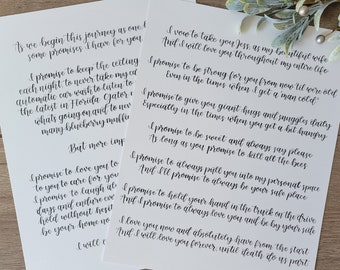 As we begin this journey as one,
some promises I have for you,
I promise to keep the ceiling
each night, to never take my
automatic car wash to listen to
the latest in Florida Gator
whats going on and to
many blueberry muffin
But more imp
I promise to love you
to you to care for you
I promise to laugh
days and endure
hold without
be your home
I will
I vow to take you Jess, as my beautiful wife
And I will love you throughout my entire life
I promise to be strong for you from now til were old
Even in the times when I get a man cold
I promise to give you giant hugs and snuggles daily
Especially in the times when you get a bit hangry
I promise to be sweet and always say please
As long as you promise to kill all the bees
I promise to always pull you into my personal space
And I'll promise to always be your safe place
I promise to hold your hand in the truck on the drive
And I promise to always love you and be by your side
I love you now and absolutely have from the start
And I will love you forever, until death do us part